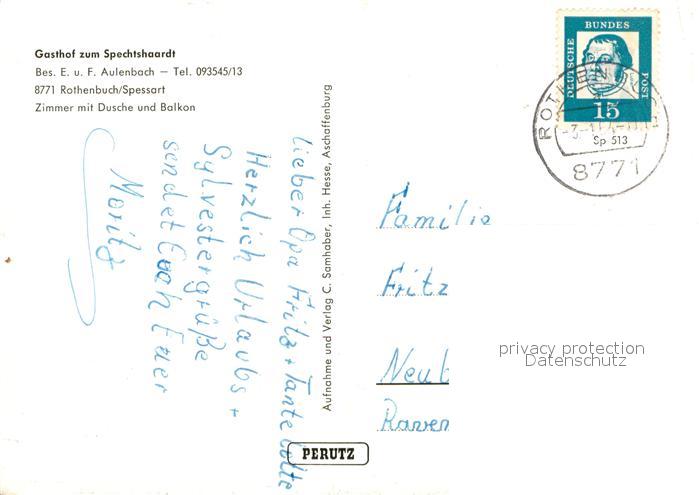 Gasthof zum Spechtshaardt
Bes. E. u. F. Aulenbach — Tel. 093545/13
8771 Rothenbuch/Spessart
Zimmer mit Dusche und Balkon
lieber Opa Fritz + Tante Lotte
Herzlich Urlaubs +
Sylvestergrüße
sendet Euch Euer
Moritz
Aufnahme und Verlag C. Samhaber, Inh. Hesse, Aschaffenburg
PERUTZ
DEUTSCHE BUNDES POST
15
Sp 513
8771
Familie
Fritz
Neub
Raven
privacy protection
Datenschutz